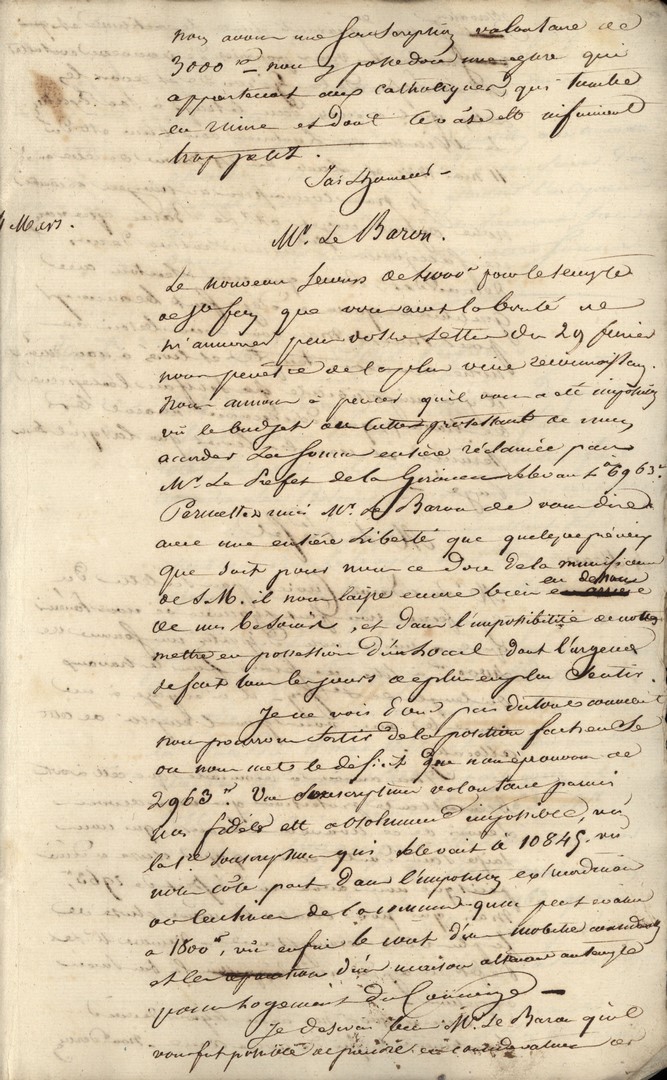 nous avons une souscription volontaire de
3000 fr nous y possedons une eglise qui
appartenait aux catholiques, qui tombe
en ruine et dont le vase est infiniment
trop petit.
J'ai l'honneur
Mars.
Mr. Le Baron.
Le nouveau secours de 4000 fr pour le temple
de Ste foy que vous avez la bonté de
m'annoncer par votre Lettre du 29 février
nous pénètre de la plus vive reconnoissance.
Nous aimons à penser qu'il vous a été impossible
vû le budget du culte protestant de nous
accorder la somme entière réclamée par
Mr. Le Préfet de la Gironde s'élevant à 6963 fr
Permettez moi Mr. Le Baron de vous dire
avec une entière liberté que quelque précieux
que soit pour nous ce don de la munificence
de S.M. il nous laisse encore bien en dehors
de nos besoins, et dans l'impossibilité de nous
mettre en possession d'un Local dont l'urgence
se fait tous les jours de plus en plus sentir.
Je ne vois pas du tout comment
nous pourrons sortir de la position facheuse
où nous met le déficit que nous éprouvons de
2963 fr. Une souscription volontaire parmi
nos fidèles est absolument impossible, vu
la 1re souscription qui s'élevait à 10845, vu
notre côte part dans l'imposition extraordinaire
de la commune qu'on peut évaluer
à 1800 fr, vû enfin le cout d'un mobilier considérable
et les réparations d'une maison attenante au temple
pour logement du Concierge
Je desire bien Mr. Le Baron qu'il
vous fut possible de prendre en considération ces